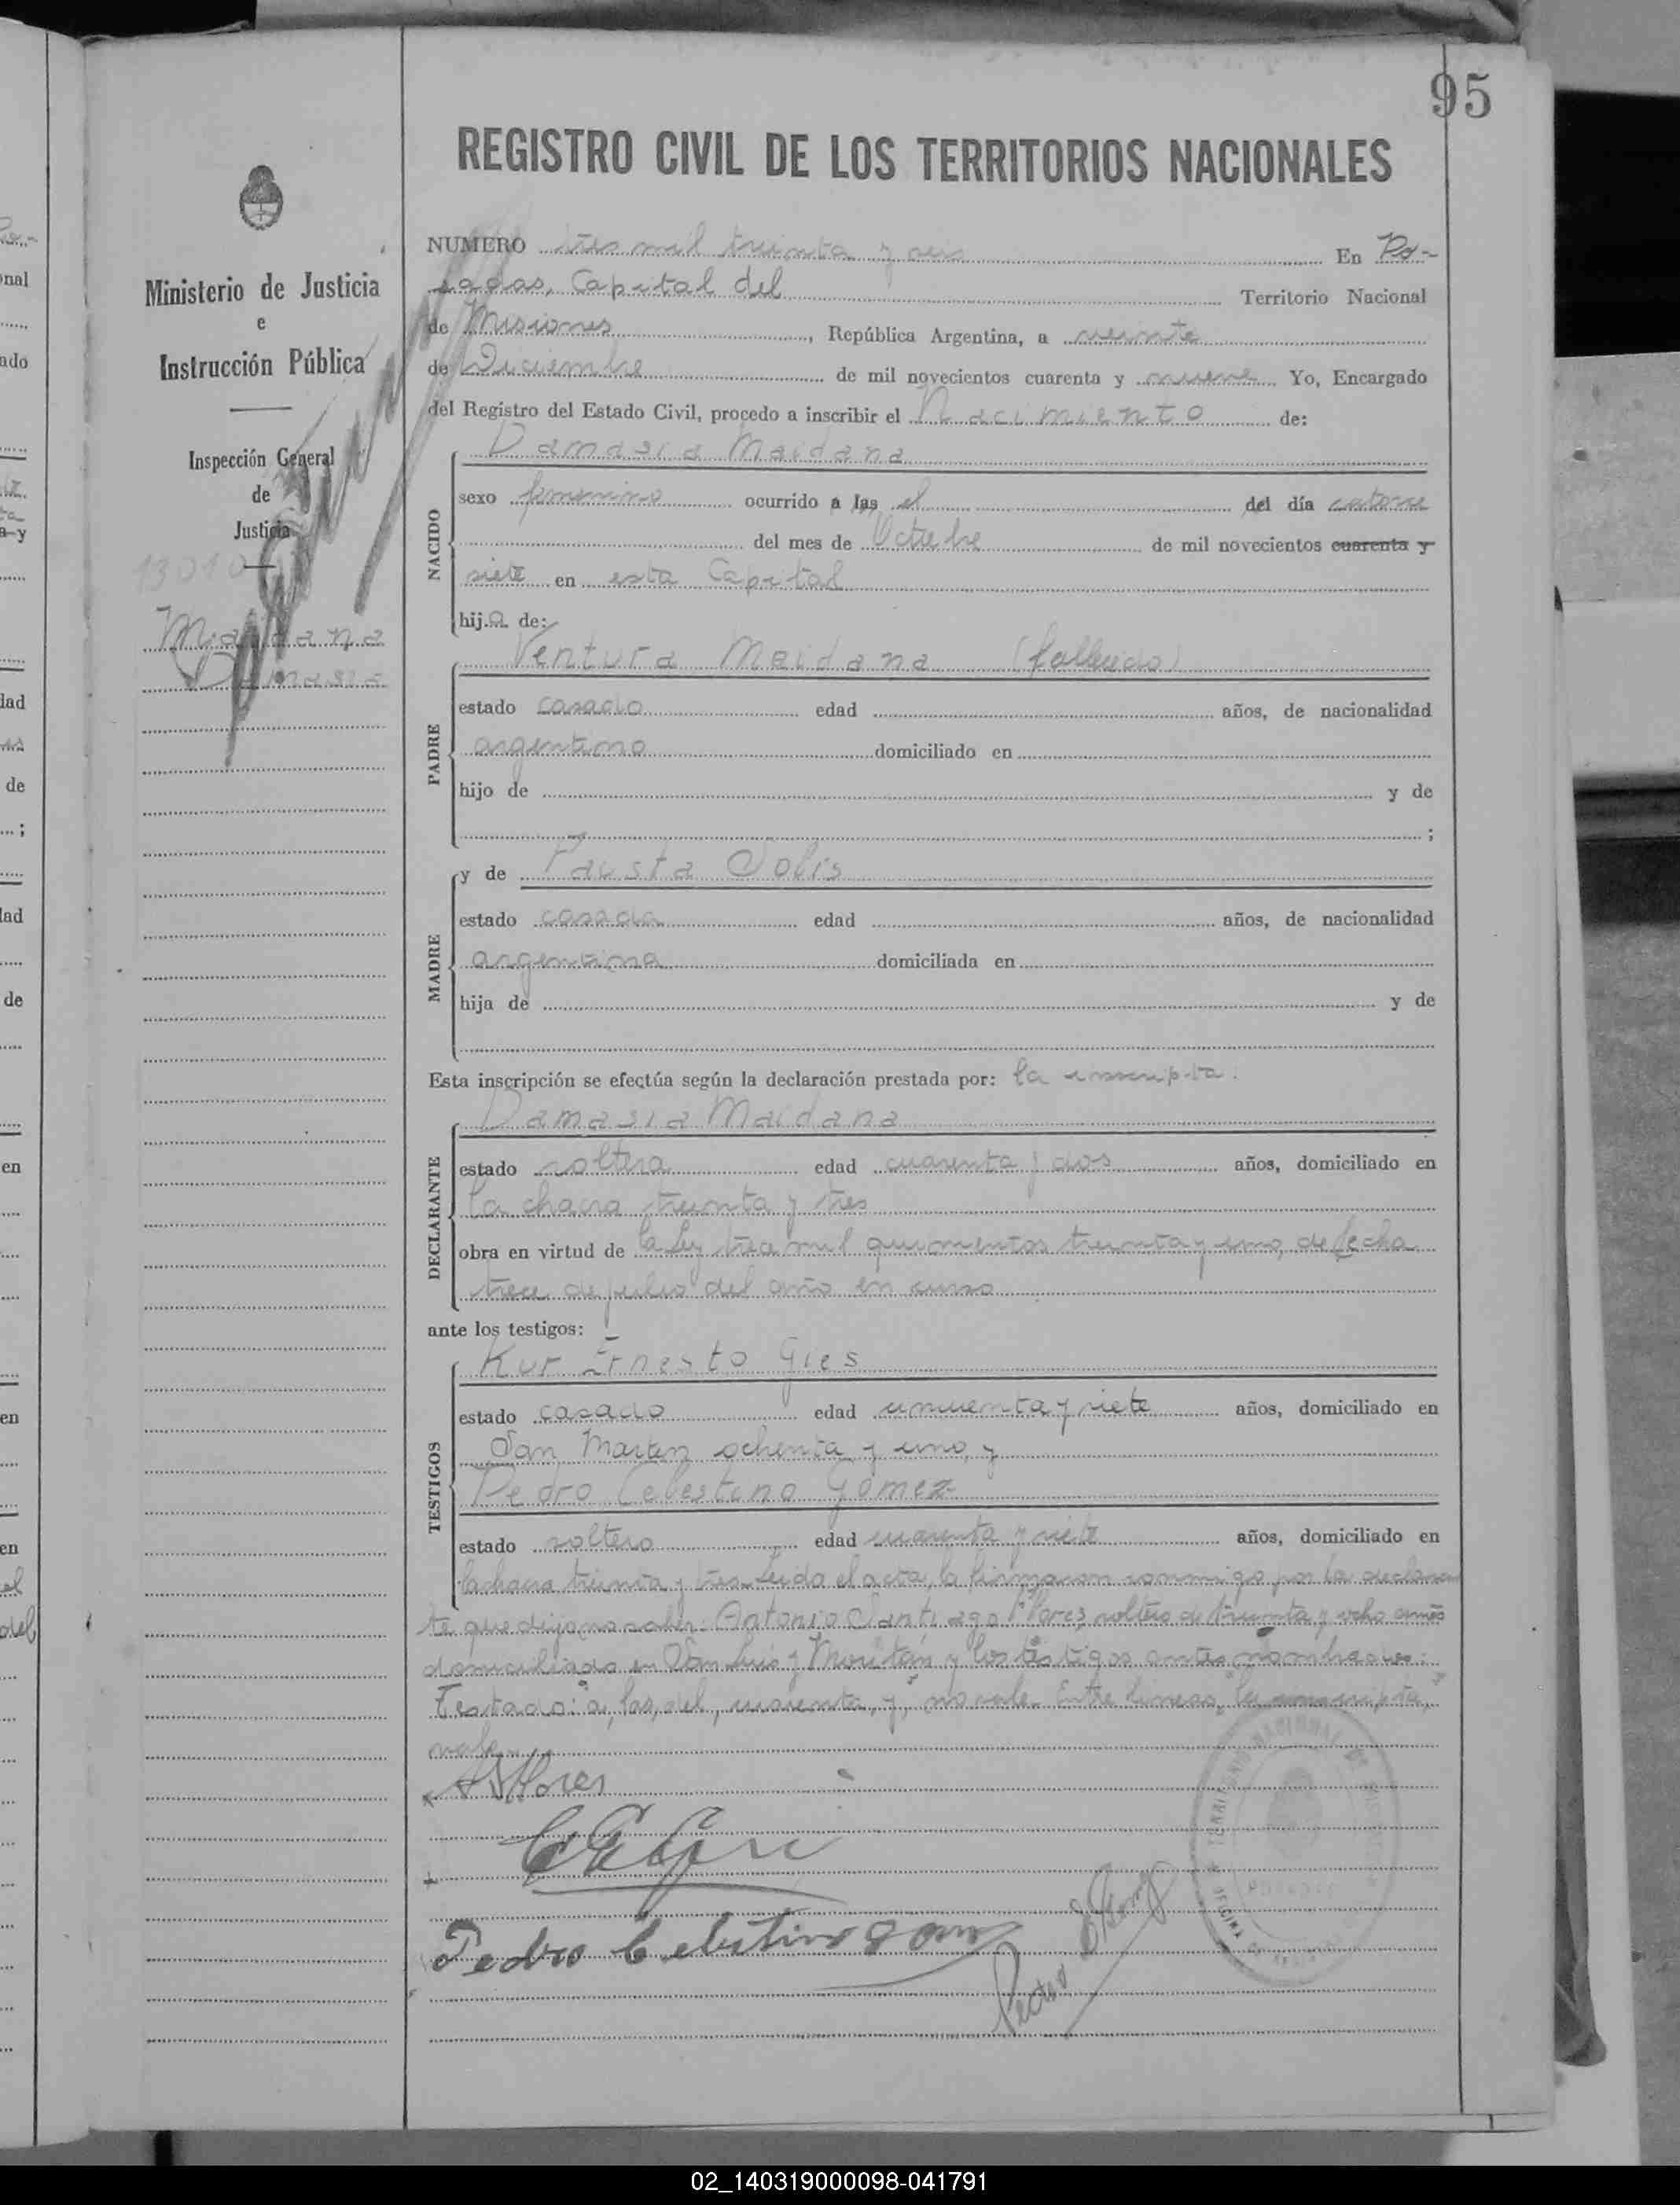 95
REGISTRO CIVIL DE LOS TERRITORIOS NACIONALES
Ministerio de Justicia
e
Instrucción Pública
Inspección General
de
Justicia
13010
Maidana
Damasia
NUMERO tres mil treinta y seis En Po-
sadas, Capital del Territorio Nacional
de Misiones, República Argentina, a veinte
de Diciembre de mil novecientos cuarenta y nueve Yo, Encargado
del Registro del Estado Civil, procedo a inscribir el Nacimiento de:
NACIDO
Damasia Maidana
sexo femenino ocurrido a las el del día catorce
del mes de Octubre de mil novecientos cuarenta y
siete en esta Capital
hija de:
PADRE
Ventura Maidana (fallecido)
estado casado edad años, de nacionalidad
argentino domiciliado en
hijo de y de
;
MADRE
y de Fausta Solis
estado casada edad años, de nacionalidad
argentina domiciliada en
hija de y de
Esta inscripción se efectúa según la declaración prestada por: la inscripta.
DECLARANTE
Damasia Maidana
estado soltera edad cuarenta y dos años, domiciliado en
la chacra treinta y tres
obra en virtud de la Ley trece mil quinientos treinta y uno, de fecha
trece de julio del año en curso
ante los testigos:
TESTIGOS
Kur Ernesto Gies
estado casado edad cincuenta y siete años, domiciliado en
San Martin ochenta y uno, y
Pedro Celestino Gomez
estado soltero edad cuarenta y siete años, domiciliado en
la chacra treinta y tres. Leida el acta, la firmaron conmigo por la declaran
te que dijo no saber: Antonio Santiago Flores, soltero de treinta y ocho años
domiciliado en San Luis y Moritán y los testigos antes nombrados.
Testado: "a, las, del, cuarenta, y," no vale. Entre lineas, "la inscripta,"
vale.
A S Flores
Pedro Celestino Gomez
02_140319000098-041791